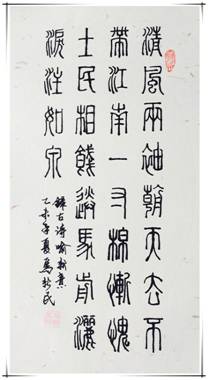 清風兩袖朝天去不
帶江南一寸棉慚愧
士民相餞送馬前灑
淚注如泉
錄古詩喻新意
乙未年夏